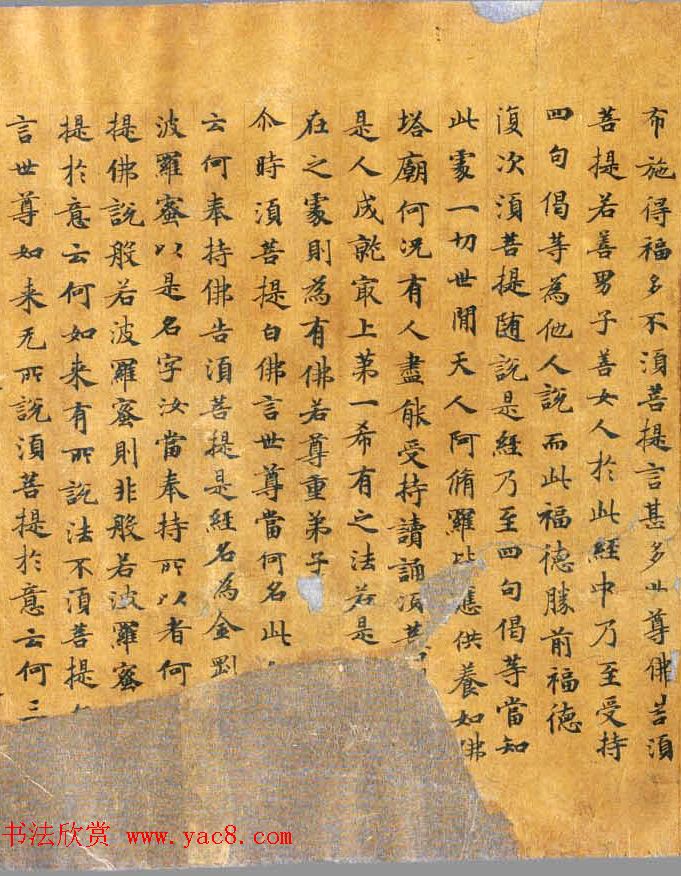 布施得福多不須菩提言甚多世尊佛告須
菩提若善男子善女人於此經中乃至受持
四句偈等為他人說而此福德勝前福德
復次須菩提随說是經乃至四句偈等當知
此處一切世間天人阿脩羅皆應供養如佛
塔廟何況有人盡能受持讀誦須菩
是人成就冣上第一希有之法若是
在之處則為有佛若尊重弟子
尒時須菩提白佛言世尊當何名此
云何奉持佛告須菩提是經名為金剛
波羅蜜以是名字汝當奉持所以者何
提佛說般若波羅蜜則非般若波羅蜜
提於意云何如来有所說法不須菩提
言世尊如来无所說須菩提於意云何三
书法欣赏 www.yac8.com